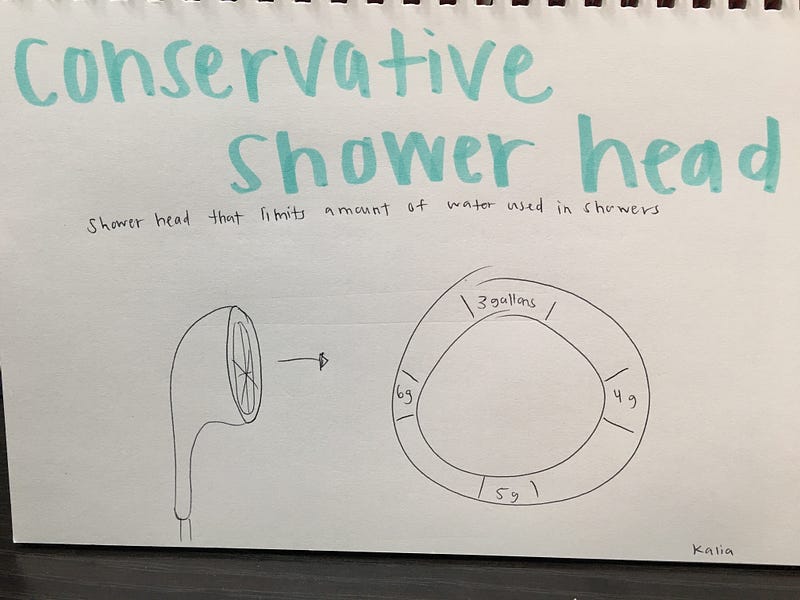 conservative
shower head
shower head that limits amount of water used in showers
3 gallons
6g
4g
5g
Kalia